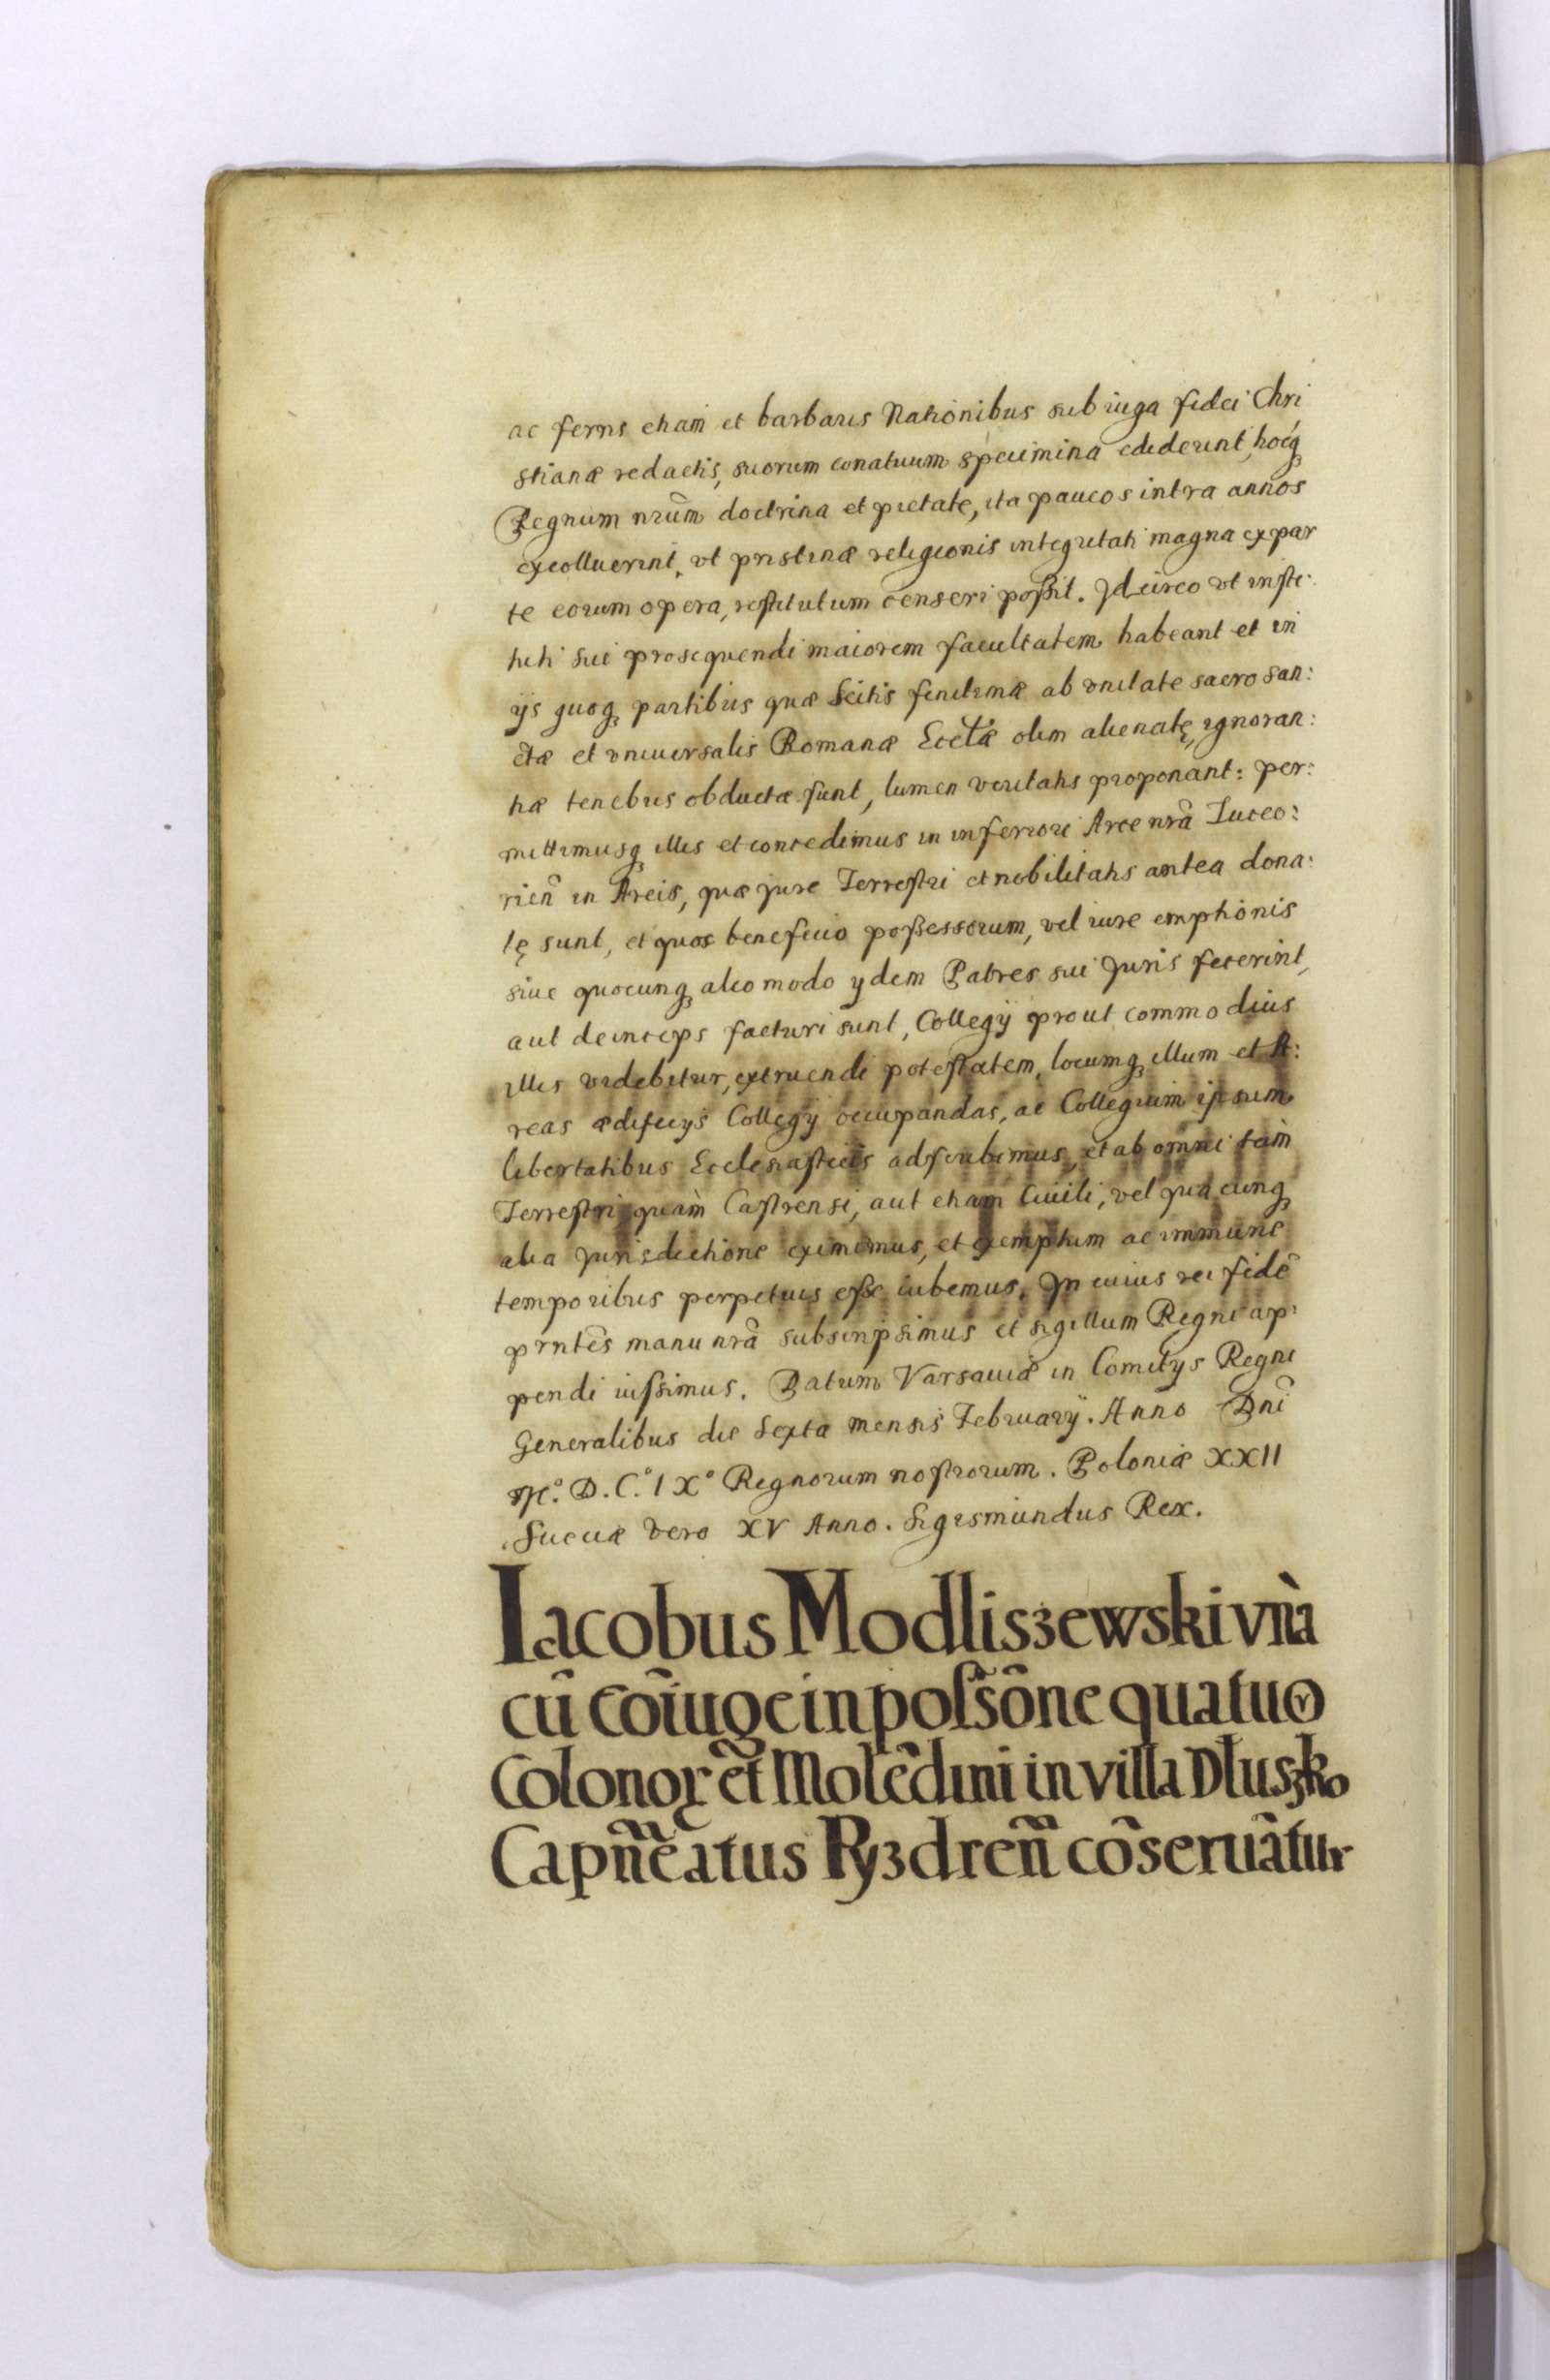 ac ferris etiam et barbaris Nationibus sub iuga fidei Chri
stianæ redactis, suorum conatuum specimina ediderunt, hocq̨
Regnum nrũm doctrina et pietate, ita paucos intra annos
excolluerint, vt pristinæ religionis integritati magna ex par
te eorum opera, restitutum censeri possit. Idcirco vt insti:
tuti sui prosequendi maiorem facultatem habeant et in
ijs quoq̨ partibus quæ Scitis finitimæ ab vnitate sacro san:
ctæ et vniuersalis Romanæ Eccł̃æ olim alienatę, ignoran:
tiæ tenebris obductæ sunt, lumen veritatis proponant: per:
mittimusq̨ illis et concedimus in inferiori Arce nrã Luceo:
rieñ in Areis, quæ jure Terrestri et nobilitatis antea dona:
tę sunt, et quos beneficio possessorum, vel iure emptionis
siue quocunq̨ alio modo ydem Patres sui Juris fecerint,
aut deinceps facturi sunt, Collegÿ prout commodius
illis videbitur, extruendi potestatem, locumq̨ illum et A:
reas ædificys Collegÿ occupandas, ac Collegium ipsum
libertatibus Ecclesiasticis adscribimus, et ab omni tam
Terrestri quàm Castrensi, aut etiam Ciuili, vel quacunq̨
alia Jurisdictione eximimus, et exemptum ac immune
temporibus perpetuis esse iubemus. In cuius rei fidẽ
prntẽs manu nrã subscripsimus et sigillum Regni ap:
pendi iussimus. Datum Varsauiæ in Comitys Regni
Generalibus die Sexta mensis Februarÿ. Anno Dnĩ
M.° D.C.° IX° Regnorum nostrorum. Poloniæ XXII
Sueciæ vero XV Anno. Sigismundus Rex.
Iacobus Modliszewski vnà
cũ cõiuge in possõne quatuor
Colonoꝝ et Molẽdini in villa Dłuszko
Capñeatus Pyzdreñ cõseruãtur